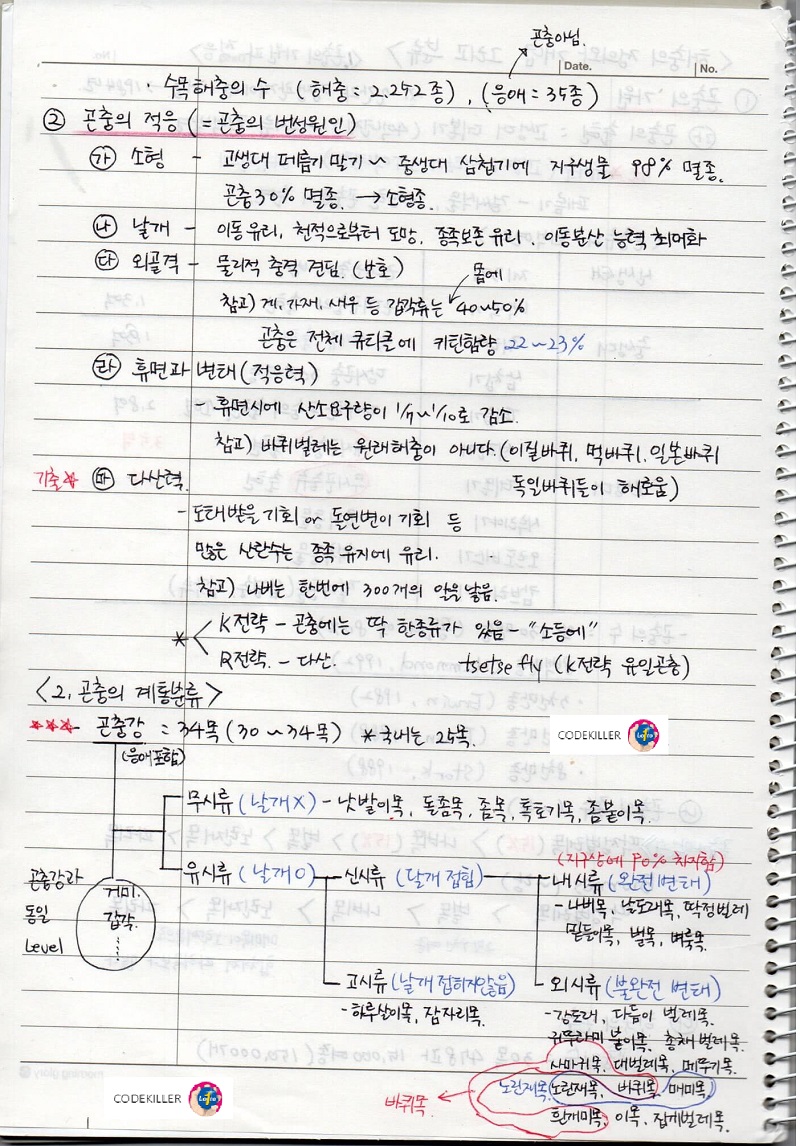 곤충아님.
Date.
No.
· 수목해충의 수 (해충 = 2,252종), (응애 = 35종)
② 곤충의 적응 (= 곤충의 번성원인)
㉮ 소형 - 고생대 페름기 말기 ~ 중생대 삼첩기에 지구생물 98% 멸종.
곤충 30% 멸종. → 소형종.
㉯ 날개 - 이동 유리, 천적으로부터 도망, 종족보존 유리, 이동분산 능력 최대화
㉰ 외골격 - 물리적 충격 견딤. (보호)
몸에
참고) 게, 가재, 새우 등 갑각류는 40~50%
곤충은 전체 큐티클에 키틴함량 22~23%
㉱ 휴면과 변태 (적응력)
- 휴면시에 산소요구량이 1/7~1/10로 감소.
참고) 바퀴벌레는 원래해충이 아니다. (이질바퀴, 먹바퀴, 일본바퀴
독일바퀴들이 해로움)
기출☆ ㉲ 다산력.
- 도태받을 기회 or 돌연변이 기회 등
많은 산란수는 종족 유지에 유리.
참고) 나비는 한번에 300개의 알을 낳음.
* K전략 - 곤충에는 딱 한종류가 있음 - "소등에"
R전략. - 다산.
tsetse fly (K전략 유일곤충)
<2. 곤충의 계통분류>
☆☆☆ 곤충강 = 34목 (30~34목) * 국내는 25목.
(응애포함)
CODEKILLER
무시류 (날개X) - 낫발이목, 돌좀목, 좀목, 톡토기목, 좀붙이목.
(지구상에 90% 차지함)
유시류 (날개O)
신시류 (날개 접힘)
내시류 (완전변태)
- 나비목, 날도래목, 딱정벌레
밑들이목, 벌목, 벼룩목.
곤충강과
동일
Level
거미.
갑각.
고시류 (날개 접히지않음)
- 하루살이목, 잠자리목.
외시류 (불완전 변태)
- 강도래, 다듬이 벌레목.
귀뚜라미 붙이목, 총채벌레목.
사마귀목, 대벌레목, 메뚜기목.
노린재목 (노린재목, 바퀴목, 매미목)
바퀴목
흰개미목, 이목, 집게벌레목.
CODEKILLER